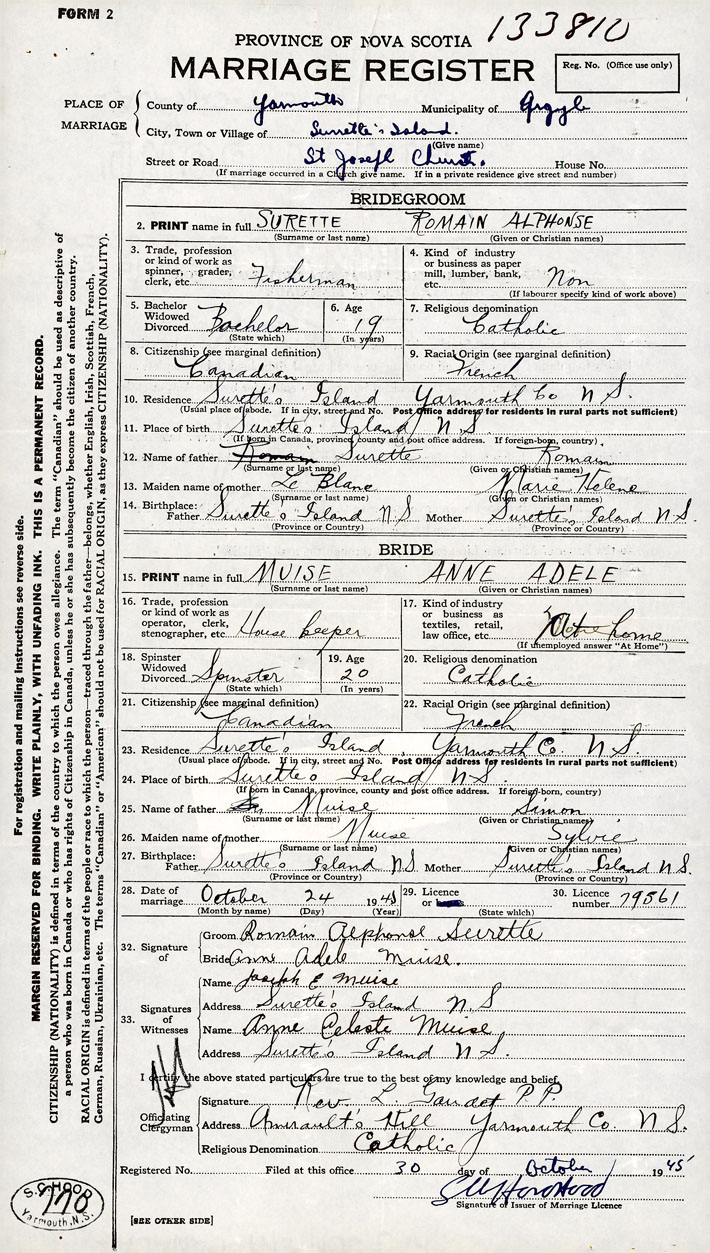 FORM 2
133810
PROVINCE OF NOVA SCOTIA
MARRIAGE REGISTER
Reg. No. (Office use only)
PLACE OF MARRIAGE
County of Yarmouth Municipality of Argyle
City, Town or Village of Surette's Island.
(Give name)
Street or Road St Joseph Church. House No.
(If marriage occurred in a Church give name. If in a private residence give street and number)
BRIDEGROOM
2. PRINT name in full SURETTE ROMAIN ALPHONSE
(Surname or last name) (Given or Christian names)
3. Trade, profession or kind of work as spinner, grader, clerk, etc. Fisherman
4. Kind of industry or business as paper mill, lumber, bank, etc. Non
(If labourer specify kind of work above)
5. Bachelor Widowed Divorced Bachelor
(State which)
6. Age 19
(In years)
7. Religious denomination
Catholic
8. Citizenship (see marginal definition)
Canadian
9. Racial Origin (see marginal definition)
French
10. Residence Surette's Island Yarmouth Co N S.
(Usual place of abode. If in city, street and No. Post Office address for residents in rural parts not sufficient)
11. Place of birth Surette's Island N S.
(If born in Canada, province, county and post office address. If foreign-born, country)
12. Name of father Romain Surette Romain
(Surname or last name) (Given or Christian names)
13. Maiden name of mother Le Blanc Marie Helene
(Surname or last name) (Given or Christian names)
14. Birthplace: Father Surette's Island N S Mother Surette's Island N S.
(Province or Country) (Province or Country)
BRIDE
15. PRINT name in full MUISE ANNE ADELE
(Surname or last name) (Given or Christian names)
16. Trade, profession or kind of work as operator, clerk, stenographer, etc. House keeper
17. Kind of industry or business as textiles, retail, law office, etc. At home
(If unemployed answer "At Home")
18. Spinster Widowed Divorced Spinster
(State which)
19. Age 20
(In years)
20. Religious denomination
Catholic
21. Citizenship (see marginal definition)
Canadian
22. Racial Origin (see marginal definition)
French
23. Residence Surette's Island, Yarmouth Co. N S.
(Usual place of abode. If in city, street and No. Post Office address for residents in rural parts not sufficient)
24. Place of birth Surette's Island N S.
(If born in Canada, province, county and post office address. If foreign-born, country)
25. Name of father Muise Simon
(Surname or last name) (Given or Christian names)
26. Maiden name of mother Muise Sylvie
(Surname or last name) (Given or Christian names)
27. Birthplace: Father Surette's Island N S Mother Surette's Island N S.
(Province or Country) (Province or Country)
28. Date of marriage October 24 1945
(Month by name) (Day) (Year)
29. Licence or
(State which)
30. Licence number 79561
32. Signature of
Groom Romain Alphonse Surette
Bride Anne Adele Muise.
33. Signatures of Witnesses
Name Joseph E Muise
Address Surette's Island N.S
Name Anne Celeste Muise
Address Surette's Island N S.
I certify the above stated particulars are true to the best of my knowledge and belief,
Officiating Clergyman
Signature Rev. L. Gaudet P.P.
Address Amirault's Hill Yarmouth Co. N.S.
Religious Denomination Catholic
Registered No. Filed at this office 30 day of October 1945
Signature of Issuer of Marriage Licence
[SEE OTHER SIDE]
For registration and mailing instructions see reverse side.
MARGIN RESERVED FOR BINDING. WRITE PLAINLY, WITH UNFADING INK. THIS IS A PERMANENT RECORD.
CITIZENSHIP (NATIONALITY) is defined in terms of the country to which the person owes allegiance. The term "Canadian" should be used as descriptive of
a person who was born in Canada or who has rights of Citizenship in Canada, unless he or she has subsequently become the citizen of another country.
RACIAL ORIGIN is defined in terms of the people or race to which the person—traced through the father—belongs, whether English, Irish, Scottish, French,
German, Russian, Ukrainian, etc. The terms "Canadian" or "American" should not be used for RACIAL ORIGIN, as they express CITIZENSHIP (NATIONALITY).
S.C. HOOD
Yarmouth, N.S.